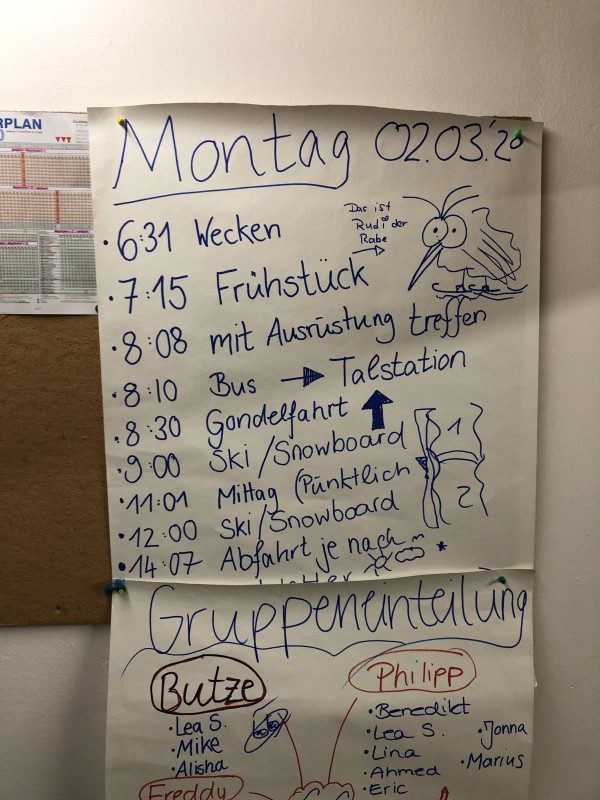 RPLAN
Montag 02.03.'20
Das ist
Rudi der
Rabe
· 6:31 Wecken
· 7:15 Frühstück
· 8:08 mit Ausrüstung treffen
· 8:10 Bus → Talstation
· 8:30 Gondelfahrt
· 9:00 Ski/Snowboard
· 11:01 Mittag (Pünktlich
· 12:00 Ski/Snowboard
· 14:07 Abfahrt je nach
1
2
Gruppeneinteilung
Butze
· Lea S.
· Mike
· Alisha
Freddy
Philipp
· Benedikt
· Lea S.
· Lina
· Ahmed
· Eric
· Jonna
· Marius